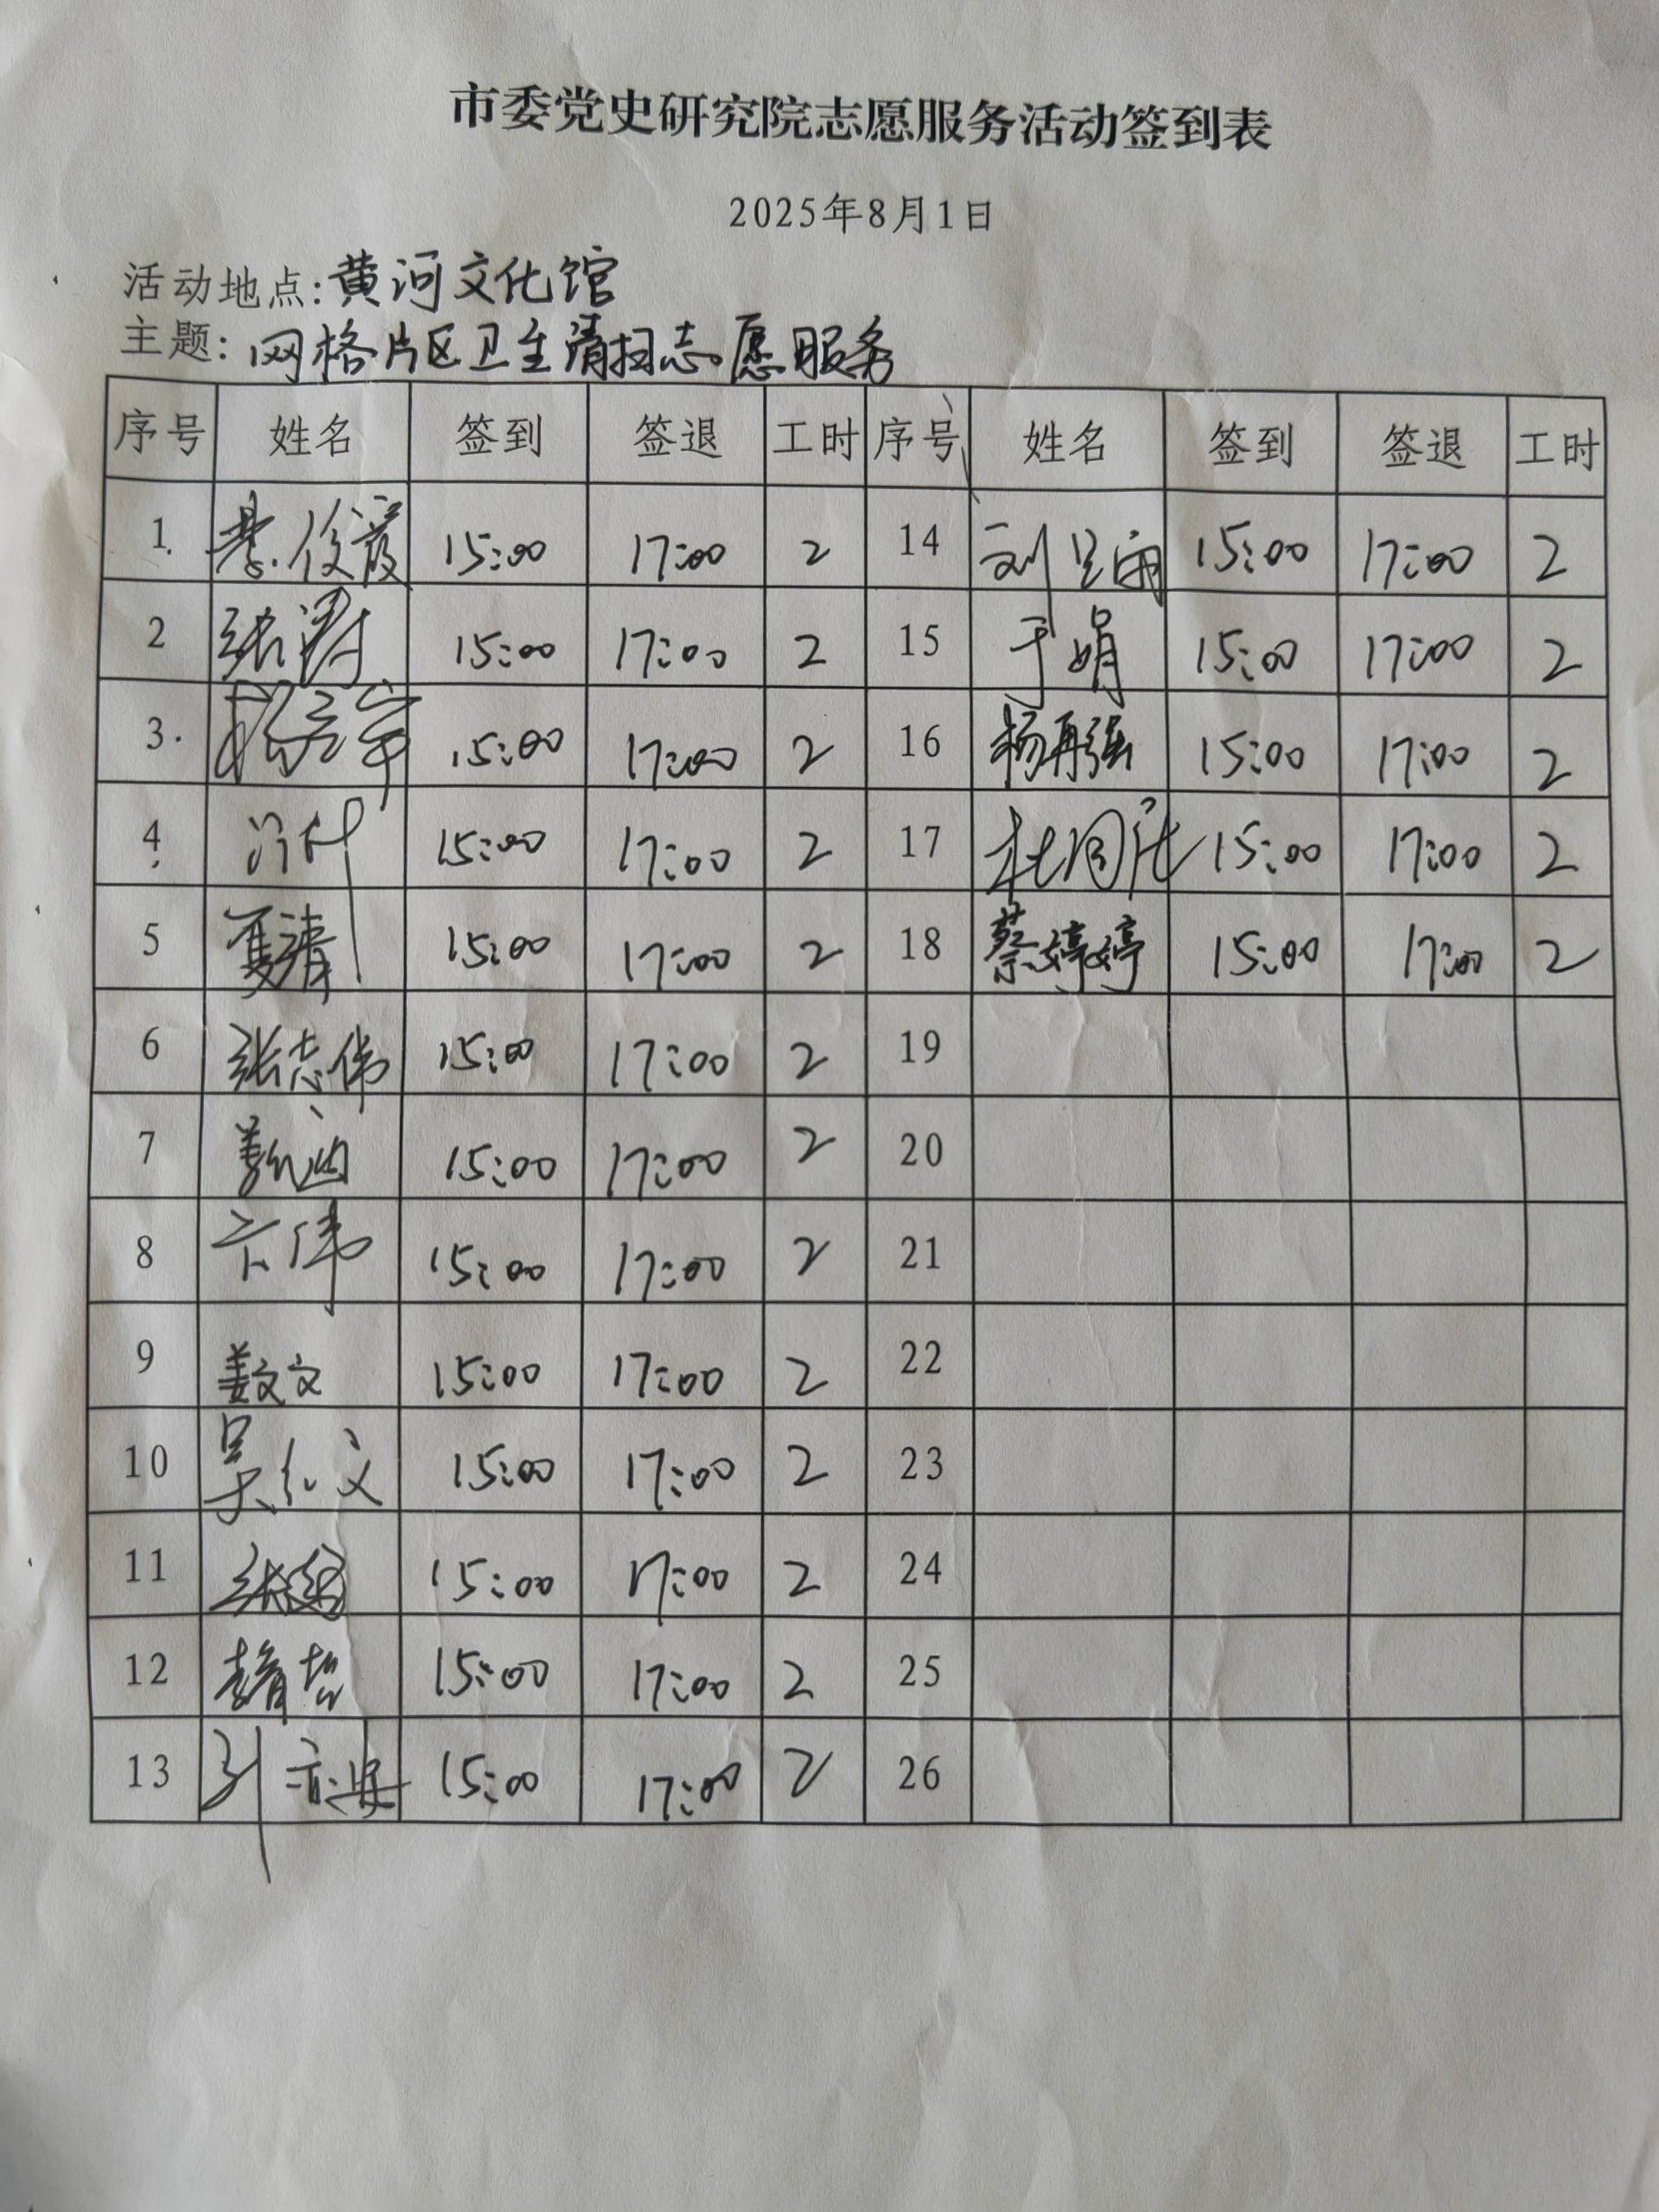 市委党史研究院志愿服务活动签到表
2025年8月1日
活动地点:黄河文化馆
主题:网格片区卫生清扫志愿服务
序号 姓名 签到 签退 工时 序号 姓名 签到 签退 工时
1 15:00 17:00 2 14 刘 15:00 17:00 2
2 张 15:00 17:00 2 15 于娟 15:00 17:00 2
3 15:00 17:00 2 16 杨再强 15:00 17:00 2
4 15:00 17:00 2 17 杜 15:00 17:00 2
5 夏清 15:00 17:00 2 18 蔡婷婷 15:00 17:00 2
6 张志伟 15:00 17:00 2 19
7 姜 15:00 17:00 2 20
8 伟 15:00 17:00 2 21
9 姜文文 15:00 17:00 2 22
10 吴红文 15:00 17:00 2 23
11 张 15:00 17:00 2 24
12 15:00 17:00 2 25
13 15:00 17:00 2 26